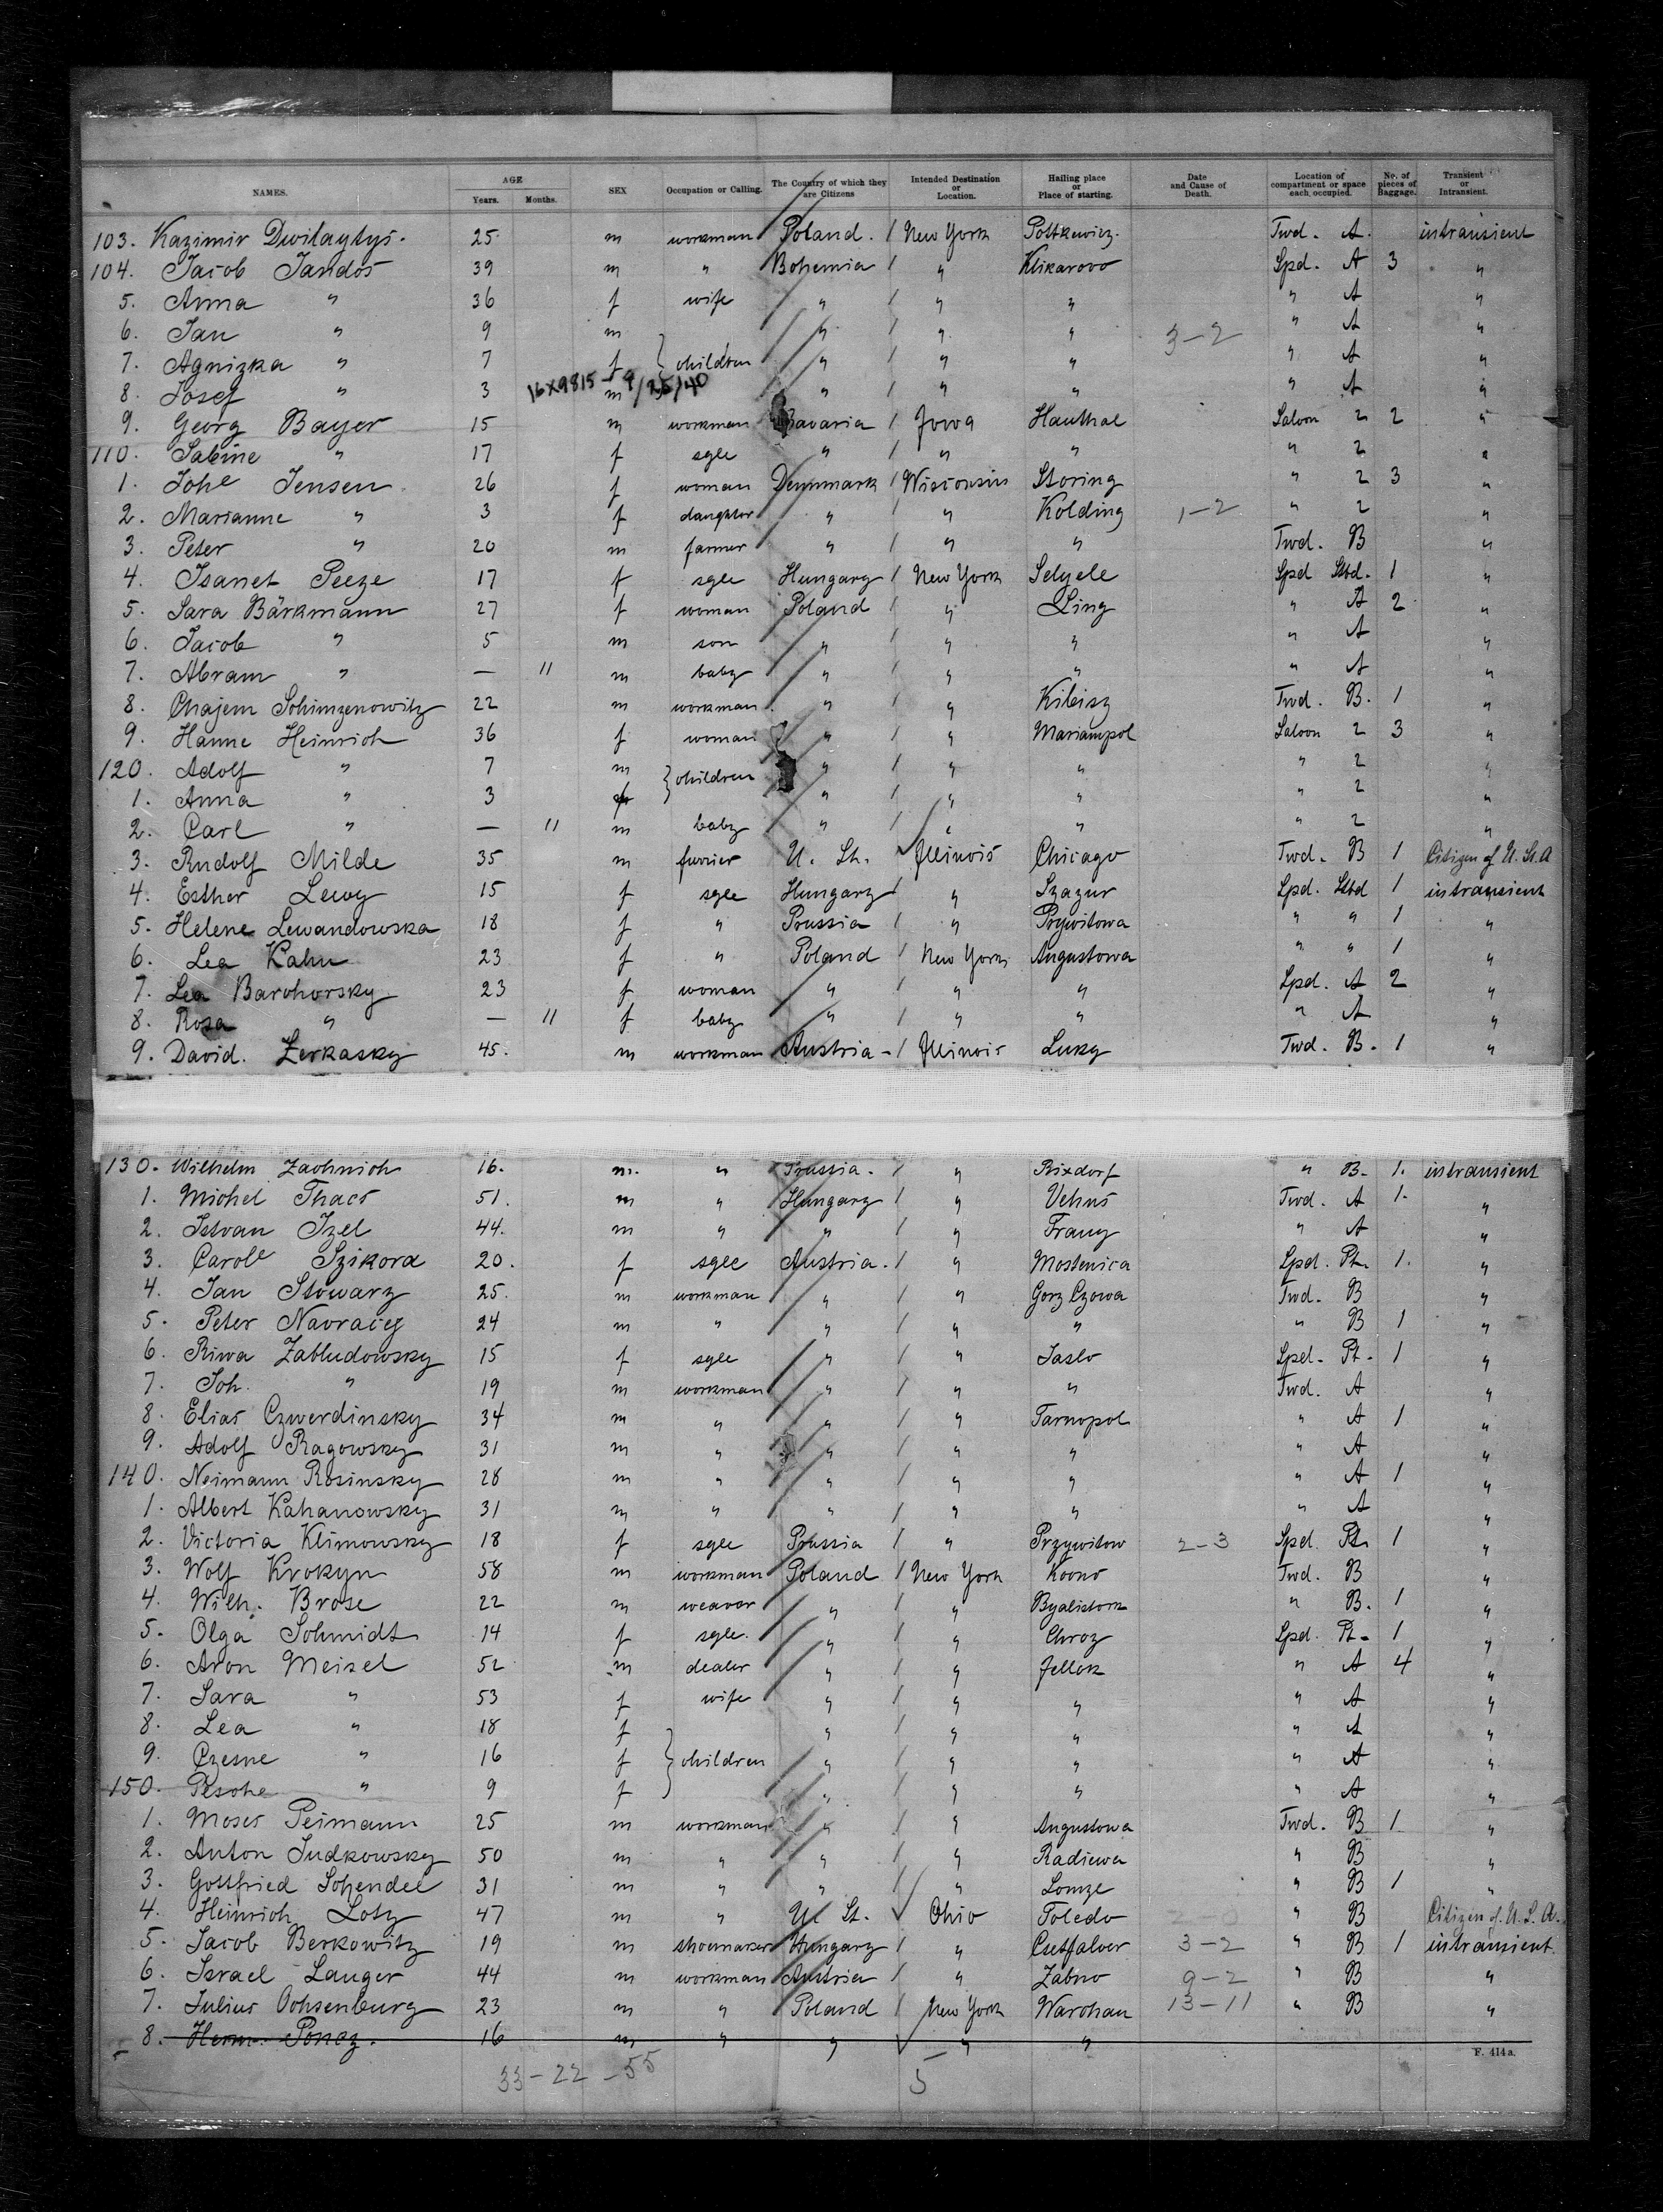 NAMES. AGE Years. Months. SEX Occupation or Calling. The Country of which they are Citizens Intended Destination or Location. Hailing place or Place of starting. Date and Cause of Death. Location of compartment or space each occupied. No. of pieces of Baggage. Transient or Intransient.
103. Kazimir Dwilaytys. 25 m workman Poland. / New York Poltkewicz. Twd. A. intransient
104. Jacob Jandos 39 m " Bohemia / " Klikarovo Spd. A 3 "
5. Anna " 36 f wife " / " " " A "
6. Jan " 9 m " / " " 3-2 " A "
7. Agnizka " 7 f } children " / " " " A "
8. Josef " 3 16x9815 - 9/25/40 m " / " " " A "
9. Georg Bayer 15 m workman Bavaria / Jowa Hauthal Saloon 2 2 "
110. Sabine " 17 f sgle " / " " " 2 "
1. Johe Jensen 26 f woman Dennmark / Wisconsin Storing " 2 3 "
2. Marianne " 3 f daughter " / " Kolding 1-2 " 2 "
3. Peter " 20 m farmer " / " " Twd. B "
4. Isanet Peeze 17 f sgle Hungary / New York Selyele Spd Stbd. 1 "
5. Sara Bärkmann 27 f woman Poland / " Ling " A 2 "
6. Jacob " 5 m son " / " " " A "
7. Abram " — 11 m baby " / " " " A "
8. Chajem Schimzenowitz 22 m workman " / " Kibisz Twd. B. 1 "
9. Hanne Heinrich 36 f woman " / " Mariampol Saloon 2 3 "
120. Adolf " 7 m } children " / " " " 2 "
1. Anna " 3 f " / " " " 2 "
2. Carl " — 11 m baby " / " " " 2 "
3. Rudolf Milde 35 m furrier U. St. Jllinois Chicago Twd. B 1 Citizen of U. St. A
4. Esther Lewy 15 f sgle Hungary / " Szazur Spd. Stbd 1 intransient
5. Helene Lewandowska 18 f " Prussia / " Prywitowa " " 1 "
6. Lea Kahn 23 f " Poland / New York Augustowa " " 1 "
7. Lea Barchorsky 23 f woman " / " " Spd. A 2 "
8. Rosa " — 11 f baby " / " " " A "
9. David. Zerkasky 45. m workman Austria - / Jllinois Luky Twd. B. 1 "
130. Wilhelm Zachnich 16. m. " Prussia. / " Rixdorf " B. 1. intransient
1. Michel Thacs 51. m " Hungary / " Vehus Twd. A 1. "
2. Istvan Izel 44. m " " / " Frany " A "
3. Carole Szikora 20. f sgle Austria. / " Mostenica Spd. Pt. 1. "
4. Jan Stowarz 25. m workman " / " Gorz Czowa Twd. B "
5. Peter Navracig 24 m " " / " " " B 1 "
6. Riwa Zabludowsky 15 f sgle " / " Jaslo Spd. Pt. 1 "
7. Joh. " 19 m workman " / " " Twd. A "
8. Elias Czwerdinsky 34 m " " / " Tarnopol " A 1 "
9. Adolf Ragowsky 31 m " " / " " " A "
140. Neimann Rosinsky 28 m " " / " " " A 1 "
1. Albert Kahanowsky 31 m " " / " " " A "
2. Victoria Klimowsky 18 f sgle Prussia / " Przywitow 2-3 Spd. Pt. 1 "
3. Wolf Krokyn 58 m workman Poland / New York Kovno Twd. B "
4. Wilh. Brose 22 m weaver " / " Byalistock " B. 1 "
5. Olga Schmidt 14 f sgle. " / " Chroz Spd. Pt. 1 "
6. Aron Meisel 52 m dealer " / " Jellok " A 4 "
7. Sara " 53 f wife " / " " " A "
8. Lea " 18 f " / " " " A "
9. Czesne " 16 f } children " / " " " A "
150. Pesche " 9 f " / " " " A "
1. Moses Peimann 25 m workman " / " Augustowa Twd. B 1 "
2. Anton Judkowsky 50 m " " / " Radiewa " B "
3. Gottfried Schendel 31 m " " / " Lomze " B 1 "
4. Heinrich Lotz 47 m " U. St. Ohio Toledo " B Citizen of U. S. A.
5. Jacob Berkowitz 19 m shoemaker Hungary / " Csetfalver 3-2 " B 1 intransient.
6. Israel Langer 44 m workman Austria / " Zabno 9-2 " B "
7. Julius Ochsenburg 23 m " Poland / New York Warchau 13-11 " B "
8. Herm. Poncz. 16 m " " " "
33-22-55 5
F. 414a.